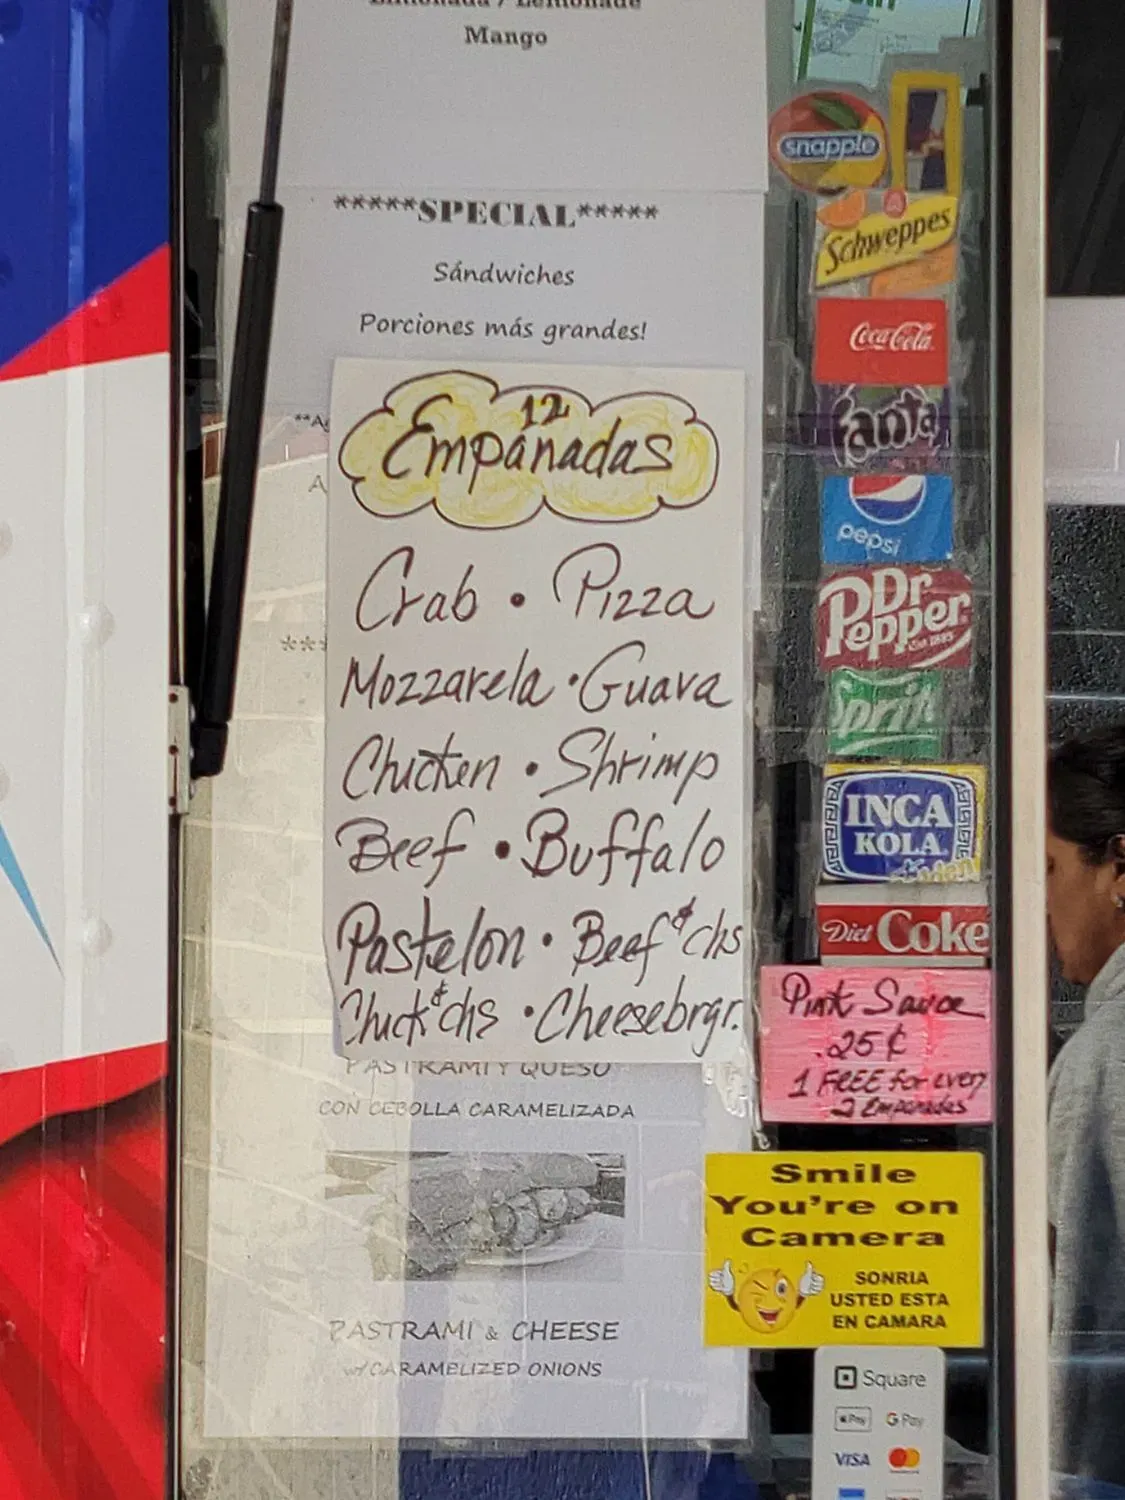 Limonada / Lemonade
Mango
*****SPECIAL*****
Sándwiches
Porciones más grandes!
12
Empanadas
Crab • Pizza
Mozzarela • Guava
Chicken • Shrimp
Beef • Buffalo
Pastelon • Beef & chs
Chick & chs • Cheesebrgr.
PASTRAMI Y QUESO
CON CEBOLLA CARAMELIZADA
PASTRAMI & CHEESE
w/ CARAMELIZED ONIONS
snapple
Schweppes
Coca-Cola
Fanta
pepsi
Dr
Pepper
Sprite
INCA
KOLA
Diet Coke
Pink Sauce
.25¢
1 FREE for every
2 Empanadas
Smile
You're on
Camera
SONRIA
USTED ESTA
EN CAMARA
Square
Pay G Pay
VISA